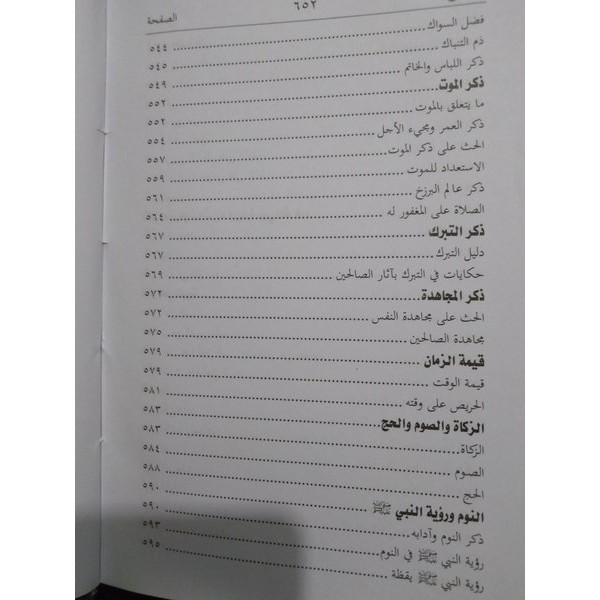 ٦٥٢
الصفحة
فضل السواك ٥٤٤
ذم التنباك ٥٤٥
ذكر اللباس والخاتم ٥٤٩
ذكر الموت ٥٥٢
ما يتعلق بالموت ٥٥٢
ذكر العمر ومجيء الأجل ٥٥٤
الحث على ذكر الموت ٥٥٧
الاستعداد للموت ٥٥٩
ذكر عالم البرزخ ٥٦١
الصلاة على المغفور له ٥٦٤
ذكر التبرك ٥٦٧
دليل التبرك ٥٦٧
حكايات في التبرك بآثار الصالحين ٥٦٩
ذكر المجاهدة ٥٧٢
الحث على مجاهدة النفس ٥٧٢
مجاهدة الصالحين ٥٧٥
قيمة الزمان ٥٧٩
قيمة الوقت ٥٧٩
الحريص على وقته ٥٨١
الزكاة والصوم والحج ٥٨٣
الزكاة ٥٨٣
الصوم ٥٨٤
الحج ٥٨٨
النوم ورؤية النبي ﷺ ٥٩٠
ذكر النوم وآدابه ٥٩٠
رؤية النبي ﷺ في النوم ٥٩٣
رؤية النبي ﷺ يقظة ٥٩٥